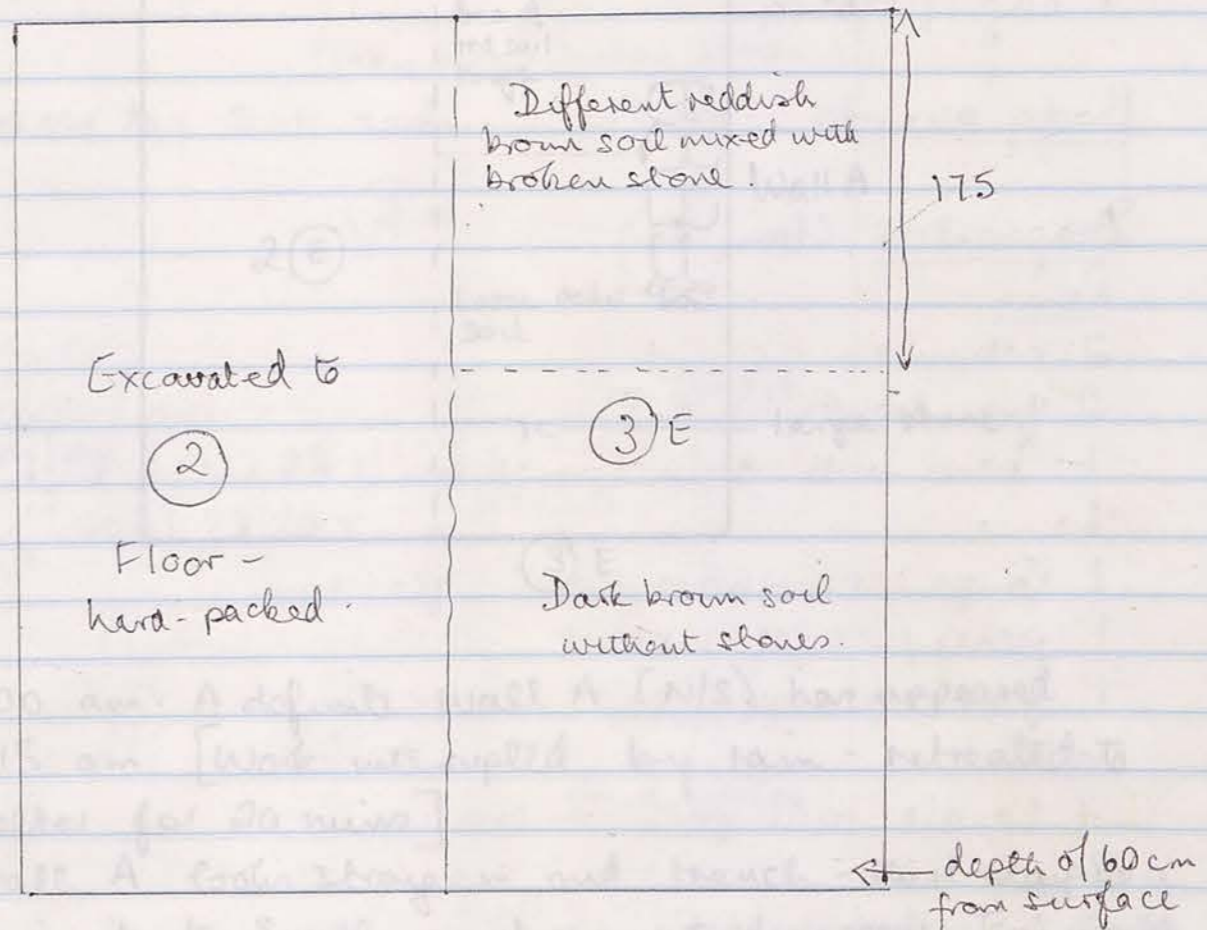 Different reddish
brown soil mixed with
broken stone.
175
Excavated to
2
Floor -
hard-packed.
3 E
Dark brown soil
without stones.
← depth of 60 cm
from surface